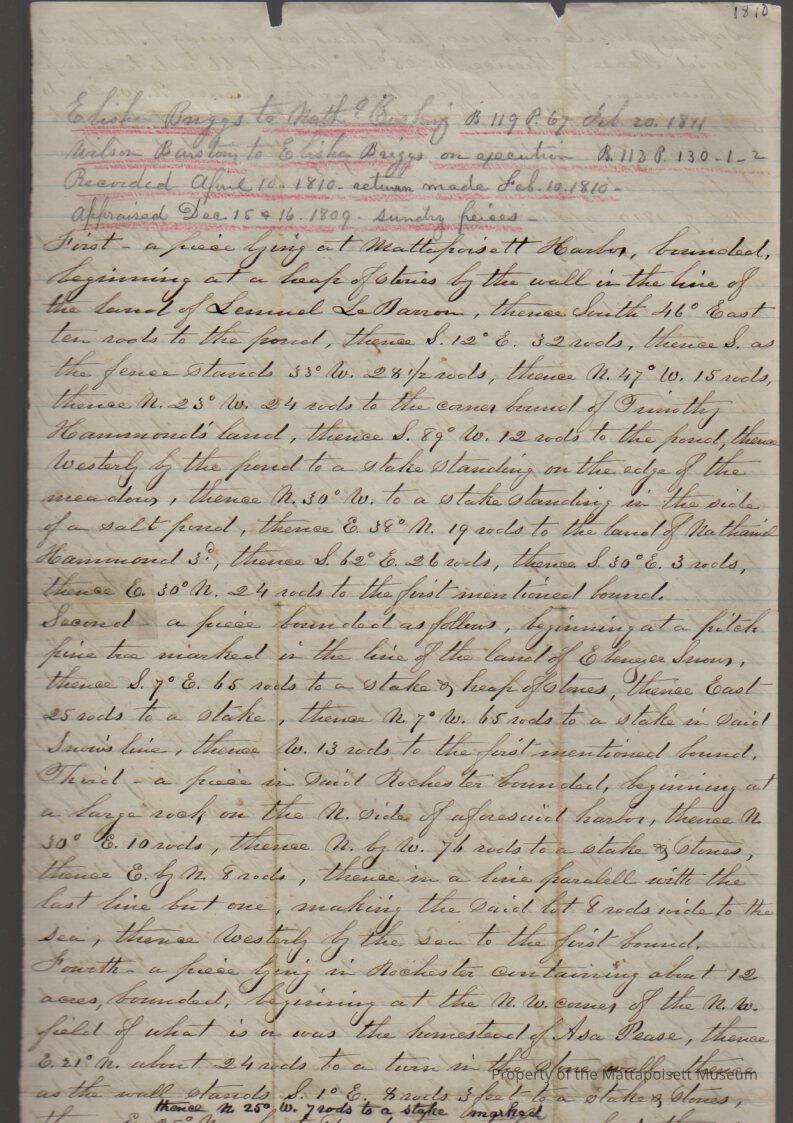 1810
Elisha Briggs to Nath.l Cushing B. 119 P. 67 Feb 20. 1811
Wilson Barstow to Elisha Briggs on execution B. 113 P. 130-1-2
Recorded April 10. 1810. return made Feb. 10. 1810 -
Appraised Dec 15 & 16. 1809 - sundry pieces -
First - a piece lying at Mattapoisett Harbor, bounded,
beginning at a heap of stones by the wall in the line of
the land of Lemuel LeBarron, thence South 46° East
ten rods to the pond, thence S. 12° E. 32 rods, thence S. as
the fence stands 33° W. 28 1/2 rods, thence N. 47° W. 15 rods,
thence N. 23° W. 24 rods to the corner bound of Timothy
Hammond's land, thence S. 89° W. 12 rods to the pond, thence
Westerly by the pond to a stake standing on the edge of the
meadow, thence N. 30° W. to a stake standing in the side
of a salt pond, thence E. 38° N. 19 rods to the land of Nathaniel
Hammond 3d, thence S. 62° E. 26 rods, thence S. 30° E. 3 rods,
thence E. 30° N. 24 rods to the first mentioned bound.
Second - a piece bounded as follows, beginning at a pitch
pine tree marked in the line of the land of Ebenezer Snow,
thence S. 7° E. 65 rods to a stake & heap of stones, thence East
25 rods to a stake, thence N. 7° W. 65 rods to a stake in said
Snow's line, thence W. 13 rods to the first mentioned bound.
Third - a piece in said Rochester bounded, beginning at
a large rock on the N. side of aforesaid harbor, thence N.
30° E. 10 rods, thence N. by W. 76 rods to a stake & stones,
thence E. by N. 8 rods, thence in a line paralell with the
last line but one, making the said lot 8 rods wide to the
sea, thence Westerly by the sea to the first bound.
Fourth - a piece lying in Rochester containing about 12
acres, bounded, beginning at the N. W. corner of the N. W.
field of what is or was the homestead of Asa Pease, thence
E. 21° N. about 24 rods to a turn in the stone wall, thence
Property of the Mattapoisett Museum
as the wall stands S. 1° E. 8 rods 3 feet to a stake & stones,
thence N 25° W. 7 rods to a stake marked